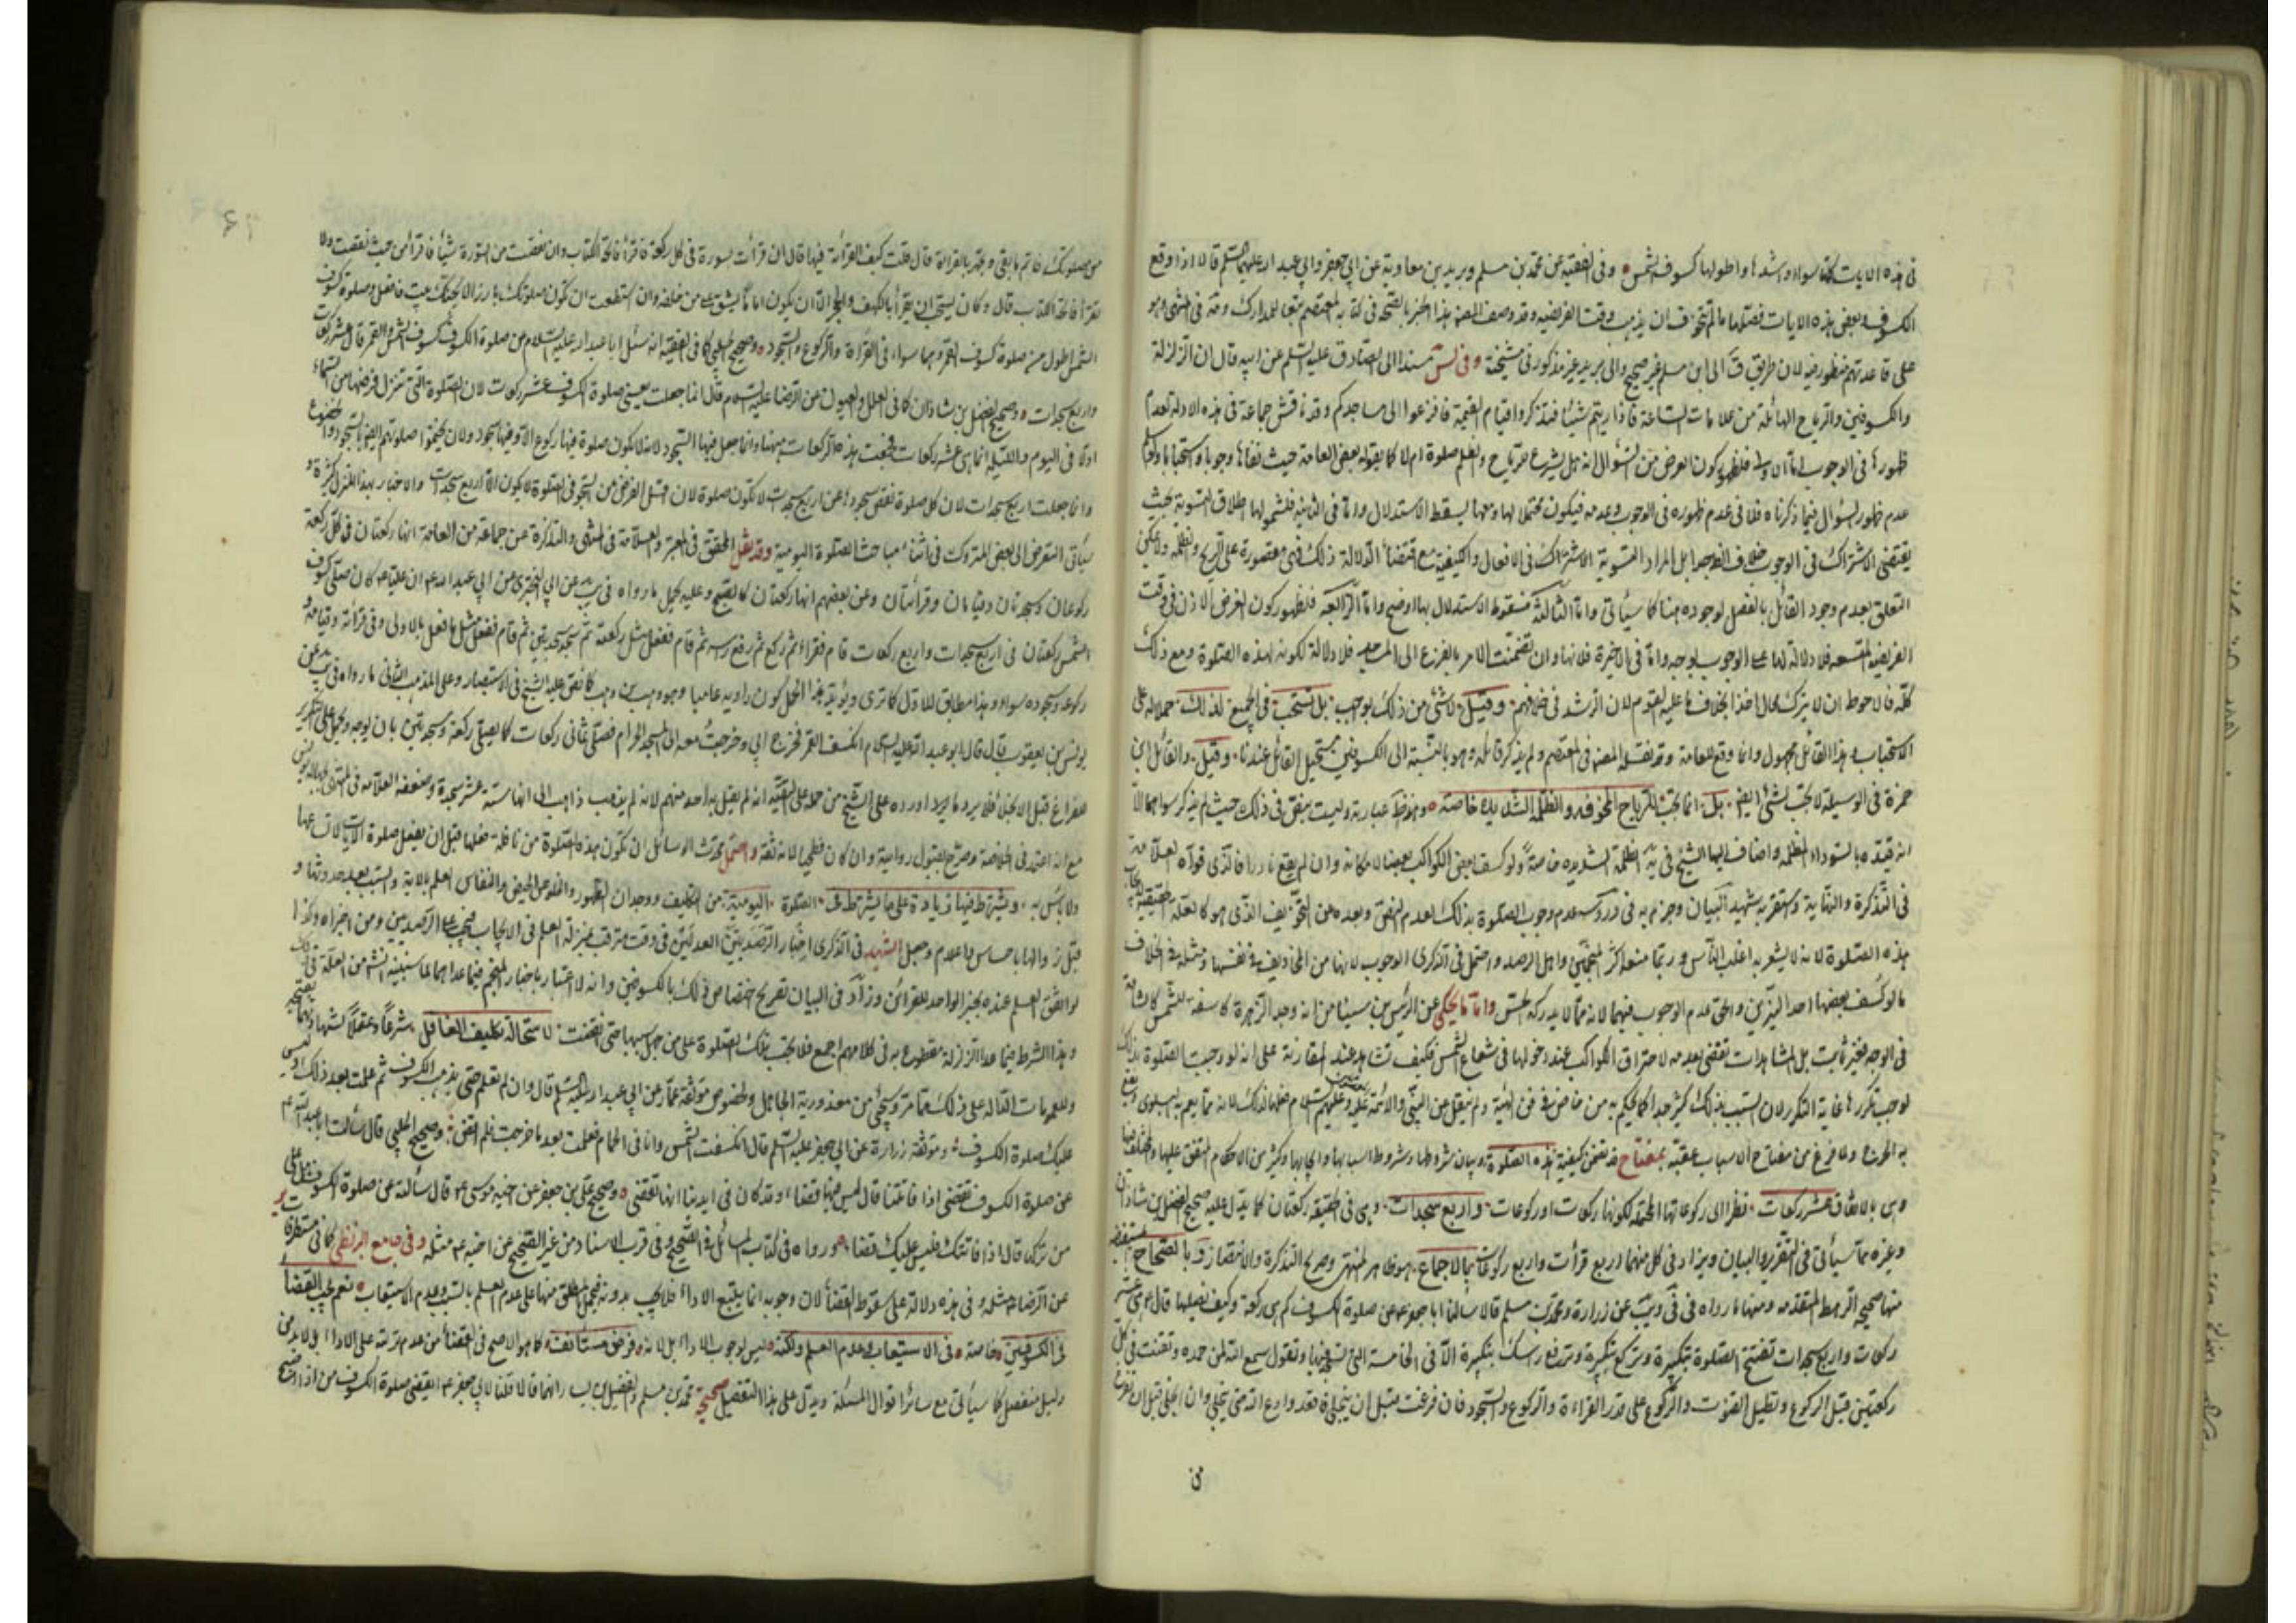 فى هذه الايات كلها سواء واشدها واطولها كسوف الشمس وفى الفقيه عن محمد بن مسلم وبريد بن معاوية عن ابي جعفر وابي عبد الله عليهما السلم قالا اذا وقع
الكسوف او بعض هذه الايات فصلها ما لم تتخوف ان يذهب وقت الفريضة وقد وصف المصـ هذا الخبر بالصحة فى كتابه المعتصم تبعا للمدارك وفيه فى المنتهى وهو
على قاعدتهم منظور فيه لان طريق الى ابن مسلم غير صحيح والى بريد غير مذكور فى مشيخته وفى لس مسندا الى الصادق عليه السلم عن ابيه قال ان الزلزلة
والكسوفين والرياح الهائلة من علامات الساعة فاذا رايتم شيئا فتذكروا قيام القيمة وافزعوا الى مساجدكم وقد ناقش جماعة فى هذه الادلة لعدم
ظهورها فى الوجوب اما الاولى فلظهور كون الغرض من السؤال انه هل يشرع للرياح والظلم صلوة ام لا كما يقوله بعض العامة حيث نفاها وجوبا واستحبابا
عدم ظهور السؤال فيما ذكرناه فلا فى عدم ظهوره فى الوجوب وعدمه فيكون محتملا لها ومعها يسقط الاستدلال واما فى الثانية فلشمولها اطلاق التسوية بحيث
يقتضى الاشتراك فى الوجوب خلاف الظ بل المراد التسوية الاشتراك فى الافعال والكيفية مع اقتضاء الدلالة ذلك فهى مقصورة على الريح والظلمة ولا يمكن
التعلق بعدم وجود القائل بالفصل لوجوده هنا كما سيأتى واما الثالثة فسقوط الاستدلال بها اوضح واما الرابعة فلظهور كون الغرض الاذن فى وقت
الفريضة المتسعة فلا دلالة لها على الوجوب بوجه واما فى الاخيرة فلانها وان تضمنت الامر بالفزع الى المساجد فلا دلالة لكونه لهذه الصلوة ومع ذلك
كله فالاحوط ان لا يترك بحال اخذا بخلاف ما عليه القوم لان الرشد فى خلافهم وقيل لا شئ من ذلك بوجب بل تستحب فى الجميع لذلك حملا له على
الاستحباب وهذا القائل مجهول وانما وقع للعامة وقد نقله المصنف فى المعتصم ولم يذكر قائله وهو بالنسبة الى الكسوفين مستحيل القائل عندنا وقيل والقائل ابن
حمزة فى الوسيلة لا تجب لشئ ايضا بل انما تجب للرياح المخوفة والظلمة الشديدة خاصة وهو ظ عبارته وليست بنص فى ذلك حيث لم يذكر سواهما الا
انه قيده بالسوداء المظلمة واضاف اليها الشيخ فى يه الظلمة الشديدة خاصة ولو كسف بعض الكواكب بعضا لامكانه وان لم يقع نادرا فالذى قواه العلامة
فى التذكرة والنهاية واستقربه شهيد البيان وجزم به فى دروسه عدم وجوب الصلوة بذلك لعدم النص وبعده من التخويف الذى هو كالعلة الحقيقية لايجاب
هذه الصلوة لانه لا يشعر به اغلب الناس وربما منعه اكثر المنجمين واهل الرصد واحتمل فى الذكرى الوجوب لانها من المخاويف فى نفسها ومثله فى الخلاف
ما لو كسف بعضها احد النيرين والحق عدم الوجوب فيهما لانه مما لا يدركه الحس واما ما يحكى عن الرئيس بن سينا من انه وجد الزهرة كاسفة للشمس كالشامة
فى الوجه فغير ثابت بل المشاهدات تقتضى بعدمه لاحتراق الكواكب عند دخولها فى شعاع الشمس فكيف تشاهد عند المقارنة على انه لو وجبت الصلوة بذلك
لوجب تكررها غاية التكرر لان السبب بذلك كثير جدا كما يحكيه من خاض فى فن الهيئة ولم ينقل عن النبى والائمة عليه وعليهم السلام فعلها لذلك لانه مما يعم به البلوى ويقع
به الحرج ولما فرغ من مفتاح الاسباب عقبه بمفتاح قد تضمن كيفية هذه الصلوة وبيان شروطها وشروط اسبابها وايجابها وكثير من الاحكام المتفق عليها والمختلف فيها
وهى بالاتفاق عشر ركعات نظرا الى ركوعاتها المحتملة لكونها ركعات او ركوعات واربع سجدات وهى فى الحقيقة ركعتان كما يدل عليه صحيح الفضل بن شاذان
وغيره مما سيأتى فى التقرير والبيان ويزاد فى كل منهما اربع قرأت واربع ركوعات بالاجماع وهو ظاهر المنتهى وصريح التذكرة والانتصار وبالصحاح المستفيضة
منها صحيح الرهط المتقدمة ومنها ما رواه فى فى ويب عن زرارة ومحمد بن مسلم قالا سالنا ابا جعفر عم عن صلوة الكسوف كم هى ركعة وكيف نصليها قال هى عشر
ركعات واربع سجدات تفتتح الصلوة بتكبيرة وتركع بتكبيرة وترفع رأسك بتكبيرة الا فى الخامسة التى تسجد فيها وتقول سمع الله لمن حمده وتقنت فى كل
ركعتين قبل الركوع وتطيل القنوت والركوع على قدر القراءة والركوع والسجود فان فرغت قبل ان ينجلى فاقعد وادع الله حتى ينجلى وان انجلى قبل ان تفرغ
من
من صلوتك فاتم ما بقى وتجهر بالقراءة قال قلت كيف القراءة فيها قال ان قرأت سورة فى كل ركعة فاقرأ فاتحة الكتاب وان نقصت من السورة شيئا فاقرأ من حيث نقصت ولا
تقرأ فاتحة الكتاب قال وكان يستحب ان يقرأ بالكهف والحجر الا ان يكون اماما يشق على من خلفه وان استطعت ان تكون صلوتك بارزا لا يجنك بيت فافعل وصلوة كسوف
الشمس اطول من صلوة كسوف القمر وهما سواء فى القراءة والركوع والسجود وصحيح الحلبى كما فى الفقيه انه سئل ابا عبد الله عليه السلام عن صلوة الكسوف كسوف الشمس والقمر قال عشر ركعات
واربع سجدات وصحيح الفضل بن شاذان كما فى العلل والعيون عن الرضا عليه السلام قال انما جعلت يعنى صلوة الكسوف عشر ركعات لان الصلوة التى تنزل فرضها من السماء
اولا فى اليوم والليلة انما هى عشر ركعات فجمعت هذه الركعات ههنا وانما جعل فيها السجود لانه لا تكون صلوة فيها ركوع الا وفيها سجود ولان يختموا صلوتهم ايضا بالسجود والخضوع
وانما جعلت اربع سجدات لان كل صلوة نقص سجودها عن اربع سجدات لا تكون صلوة لان اقل الفرض من السجود فى الصلوة لا يكون الا اربع سجدات والاخبار بهذا المنزل كثيرة و
سيأتى التعرض الى بعض المتروك فى اثناء مباحث الصلوة اليومية وقد نقل المحقق فى المعتبر والعلامة فى المنتهى والتذكرة عن جماعة من العامة انها ركعتان فى كل ركعة
ركوعان وسجدتان وقيامان وقرأتان وعن بعضهم انها ركعتان كالصبح وعليه يحمل ما رواه فى يب عن ابي البخترى عن ابي عبد الله عم ان عليا عم كان صلى كسوف
الشمس ركعتان فى اربع سجدات واربع ركعات قام فقراء ثم ركع ثم رفع رأسه ثم قام ففعل مثل ركعته ثم سجد سجدتين ثم قام ففعل مثل ما فعل بالاولى وفى قرأته وقيامه و
ركوعه وسجوده سواء وهذا مطابق للاول كما ترى ويؤيد هذا الحمل كون راويه عاميا وهو وهب بن وهب كما نص عليه الشيخ فى الاستبصار وعلى المذهب الثانى ما رواه فى يب عن
يونس بن يعقوب قال قال ابو عبد الله عليه السلام انكسف القمر فخرج ابي وخرجت معه الى المسجد الحرام فصلى ثمانى ركعات كما يصلى ركعة وسجدتين بان يوجه وتحمل على التقرير
الفراغ قبل الانجلاء فلا يرد ما اورده على الشيخ من حمله على التقية انه لم يقل به احد منهم لانه لم يذهب ذاهب الى انها ستة عشر سجدة وضعفه العلامة فى المنتهى بيونس
مع انه اعتمد فى الخلاصة وصرح بقبول روايته وان كان فطحيا لانه ثقة واحتمل محدث الوسائل ان تكون هذه الصلوة من نافلة فعلها قبل ان يفعل صلوة الايات
ولا بأس به ويشترط فيها زيادة على ما يشترط فى الصلوة اليومية من التكليف ووجدان الطهور والخلو عن الحيض والنفاس العلم بالاية والسبب بعد حدوثها و
قبل زوالها باحساس او اعلام وجعل الشهيد فى الذكرى اخبار الرصديين العدلين فى وقت مترقب بمنزلة العلم فى الايجاب فتجب على الرصديين ومن اخبراه وكذا
لو اتفق العلم عنده بخبر الواحد للقرائن وزاد فى البيان تصريح اختصاص ذلك بالكسوفين وانه لا اعتبار باخبار المنجم فيما عداهما لما سيبينه انشا من العلة فى ذلك
وهذا الشرط فيما عدا الزلزلة مقطوع به فى كلامهم اجمع فلا تجب تلك الصلوة على من جهل سببها حتى انقضت لاستحالة تكليف الغافل شرعا وعقلا
وللعمومات الدالة على ذلك مما مر وسيجئ من معذورية الجاهل ولخصوص موثقة عمار عن ابي عبد الله عليه السلم قال وان لم تعلم حتى يذهب الكسوف ثم علمت بعد ذلك فليس
عليك صلوة الكسوف وموثقة زرارة عن ابي جعفر عليه السلم قال انكسفت الشمس وانا فى الحمام فعلمت بعد ما خرجت فلم اقض وصحيح الحلبى قال سألت ابا عبد الله عم
عن صلوة الكسوف تقضى اذا فاتتنا قال ليس فيها قضاء وقد كان فى ايدينا انها تقضى وصحيح على بن جعفر عن اخيه موسى عم قال سألته عن صلوة الكسوف هل على
من تركها قال اذا فاتتك فليس عليك قضاء ورواه فى كتاب المسائل فى الصحيح وفى قرب الاسناد من غير الصحيح عن اخيه عم مثله وفى جامع البزنطى كما فى مستطرفات ير
عن الرضا عم مثله وفى هذه دلالة على سقوط القضاء لان وجوبه انما يتبع الاداء فلا يجب بدونه فيحمل المطلق منها على عدم العلم بالسبب وعدم الاستيعاب نعم تجب القضاء
فى الكسوفين خاصة فى الاستيعاب وعدم العلم ولكنه ليس لوجوب الاداء بل لانه فرض مستأنف كما هو الاصح فى القضاء من عدم ترتبه على الاداء بل لا بد من
دليل منفصل كما سيأتى مع سائر اقوال المسئلة ويدل على هذا التفصيل صحيح محمد بن مسلم والفضيل بن يسار انهما قالا قلنا لابي جعفر عم ايقضى صلوة الكسوف من اذا اصبح